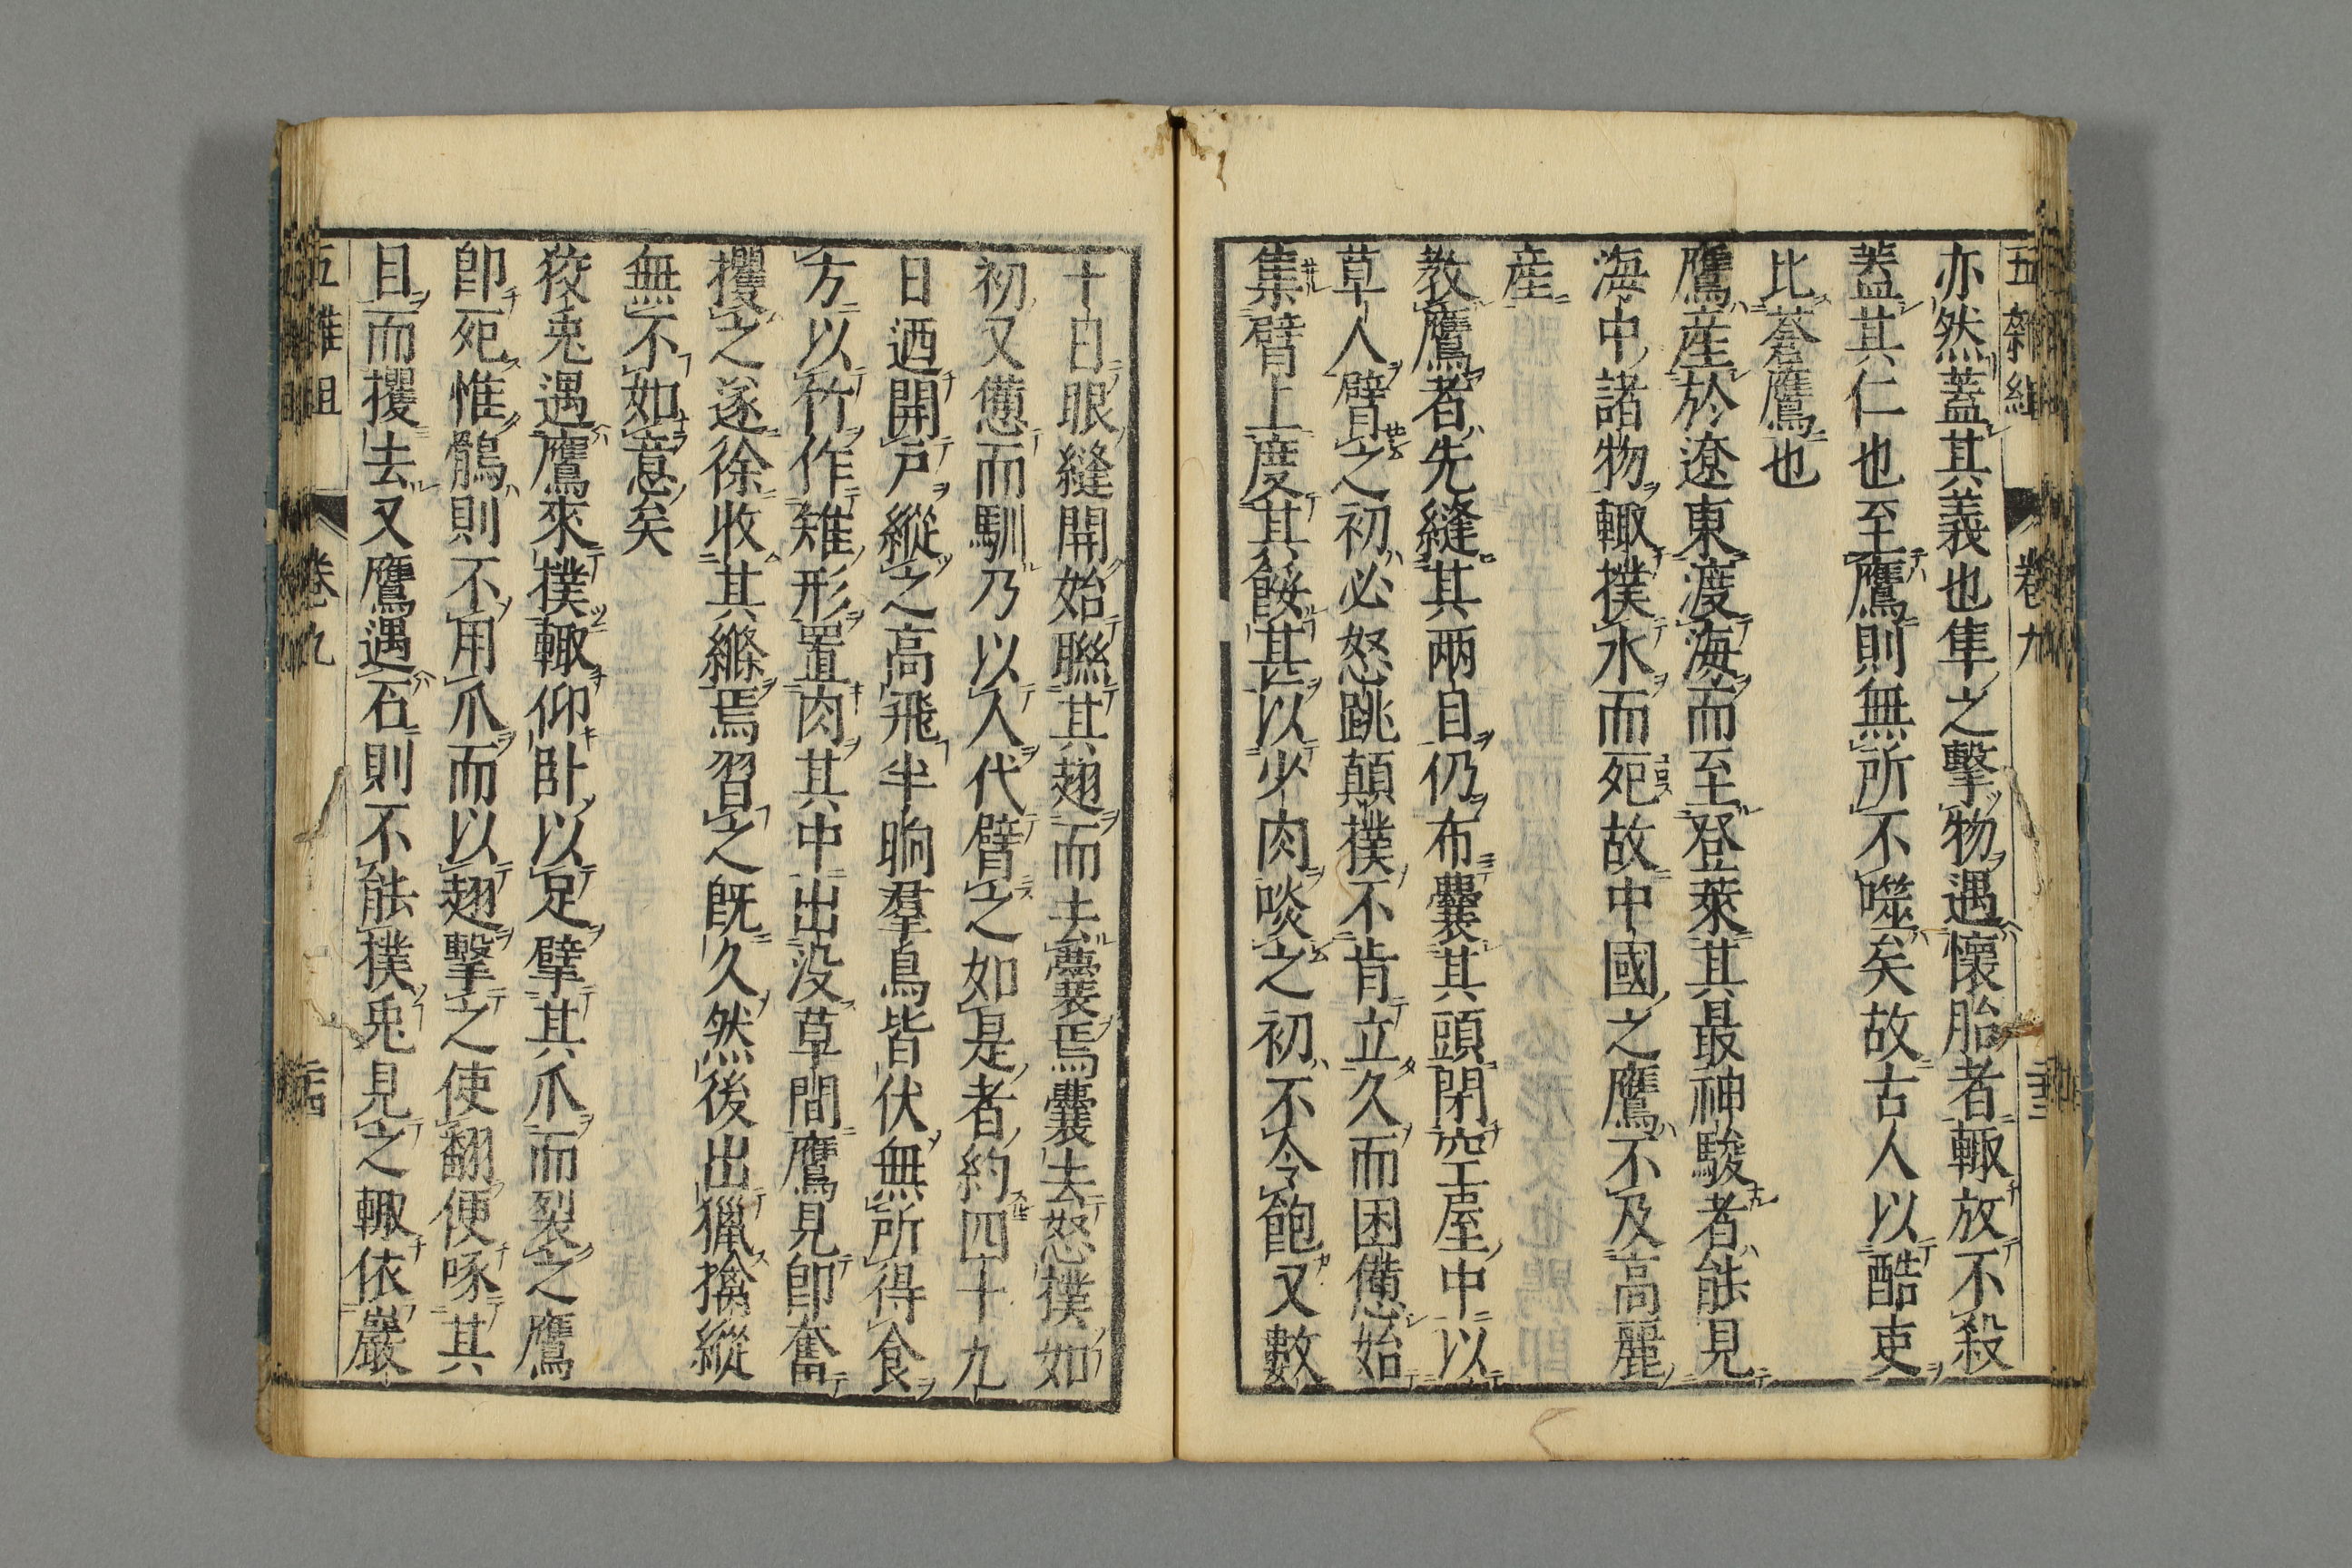 五雜組 卷九
亦然蓋其義也隼之擊物遇懷胎者輙放不殺
蓋其仁也至鷹則無所不噬矣故古人以酷吏
比蒼鷹也
鷹産於遼東渡海而至登萊其最神駿者能見
海中諸物輙撲水而死故中國之鷹不及高麗
産
教鷹者先縫其兩目仍布囊其頭閉空屋中以
草人臂之初必怒跳顛撲不肯立久而困憊始
集臂上度其餒甚以少肉啖之初不令飽又數
十日眼縫開始聯其翅而去囊焉囊去怒撲如
初又憊而馴乃以人代臂之如是者約四十九
日迺開戸縱之高飛半晌羣鳥皆伏無所得食
方以竹作雉形置肉其中出没草間鷹見卽奮
攫之遂徐收其縧焉習之既久然後出獵擒縱
無不如意矣
狡兎遇鷹來撲輙仰卧以足擘其爪而裂之鷹
卽死惟鶻則不用爪而以翅擊之使翻便啄其
目而攫去又鷹遇石則不能撲兎見之輙依巖
五雜組 卷九